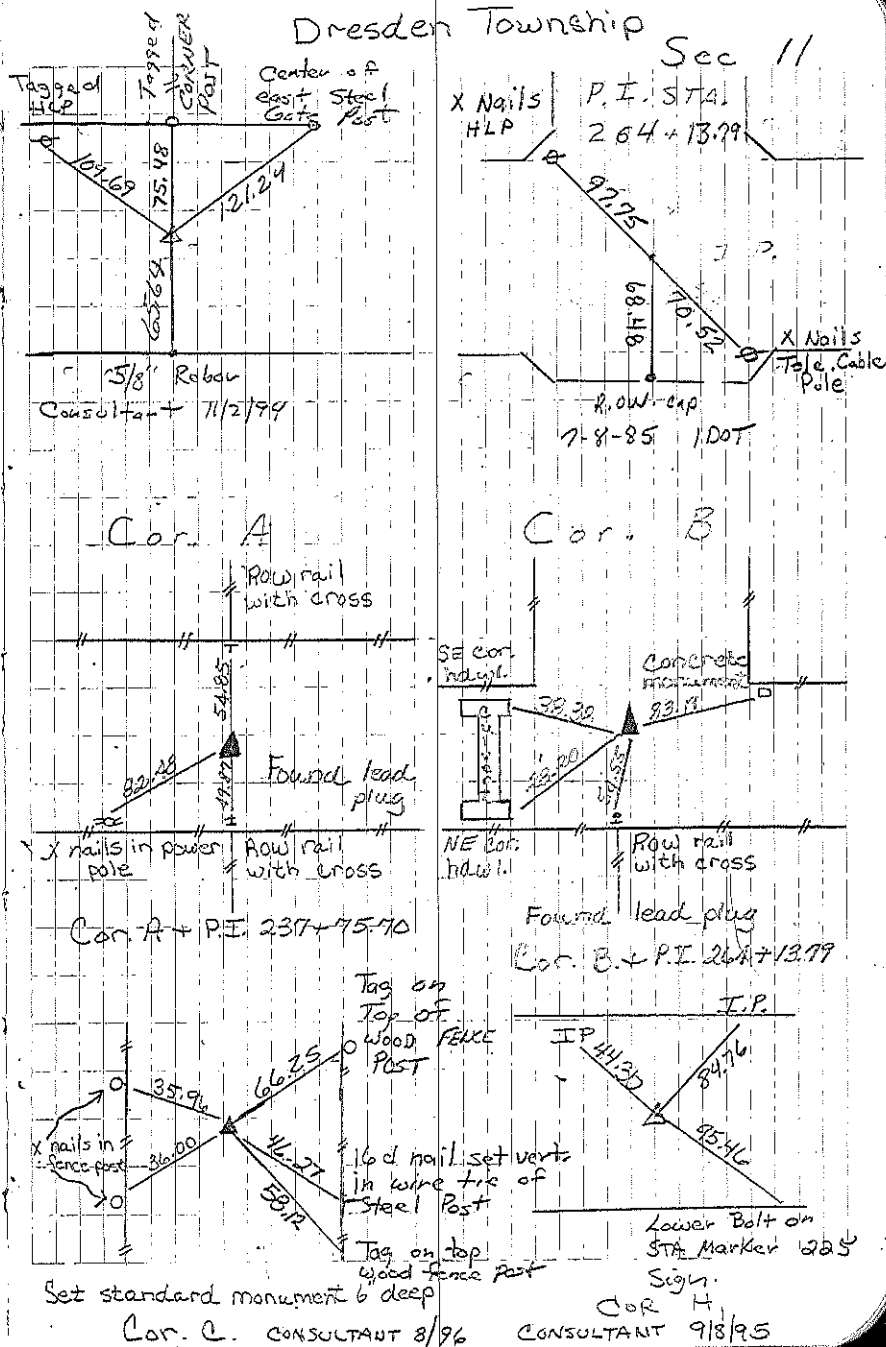 Dresden Township
Sec 11
Tagged
HLP
Tagged
CORNER
POST
Center of
east Steel
Gate Post
109.69
75.48
21.24
65.64
5/8" Rebar
Consultant 11/2/94
X Nails
HLP
P.I. STA.
264+13.79
97.75
I.P.
68.48
70.52
X Nails
Tele. Cable
Pole
R.O.W. cap
7-8-85 IDOT
Cor. A
Row rail
with cross
54.85
82.48
Found lead
plug
X nails in power
pole
Row rail
with cross
Cor. A + P.I. 237+75.70
Cor. B
SE cor.
hdwl.
concrete
monument
38.30
83.19
NE cor.
hdwl.
Row rail
with cross
Found lead plug
Cor. B. + P.I. 264+13.79
Tag on
Top of
WOOD FENCE
POST
35.96
66.25
X nails in
fence post
36.00
46.27
58.12
16d nail set vert.
in wire tie of
Steel Post
Tag on top
wood fence post
Set standard monument 6" deep
Cor. C. CONSULTANT 8/96
IP
I.P.
44.30
84.76
95.46
Lower Bolt on
STA Marker 1225
Sign.
COR H,
CONSULTANT 9/8/95